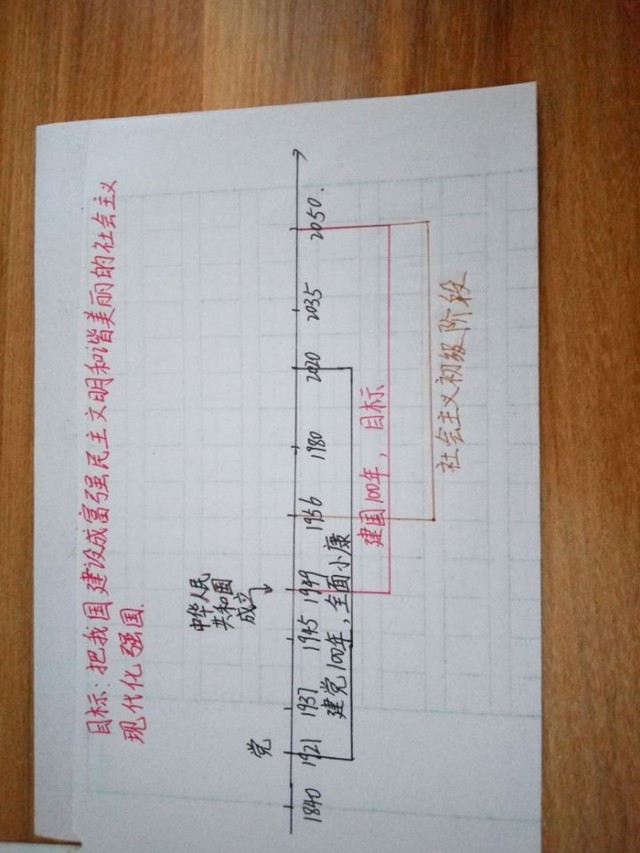 目标：把我国建设成富强民主文明和谐美丽的社会主义
现代化强国.
党
中华人民
共和国
成立
1840 1921 1937 1945 1949 1956 1980 2020 2035 2050.
建党100年，全面小康
建国100年，目标
社会主义初级阶段